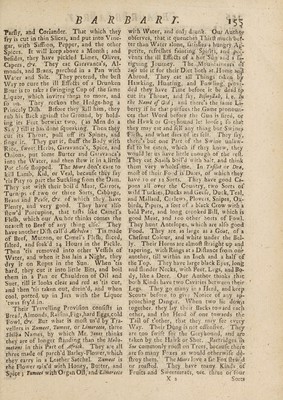 BARBARY. 155
Parsly, and Coriander. That which they
fry is cut in thin Slices, and put into Vine-
gar, with Saffron, Pepper, and the other
Spices. It will keep above a Month; and
besides, they have pickled Limes, Olives,
Capers, &c. They eat Grenavile's, Al-
monds, and Beans, parched in a Pan with
Water and Salt. They pretend, the best
way to cure the ill Effects of a Drunken
Bout is to take a stirring Cup of the same
Liquor, which invites them to more, and
so on. They reckon the Hedge-hog a
Princely Dish. Before they kill him, they
rub his Back against the Ground, by hold-
ing its Feet betwixt two, (as Men do a
Saw) till it has done squeaking. Then they
cut its Throat, pull off its Spines, and
singe it. They put it, stuff the Body with
Rice, sweet Herbs, Gravancos, Spice, and
Onions, put some Butter and Gravancos
into the Water, and then stew it in a little
Pot close stopped. The Moors don't care to
kill Lamb, Kid, or Veal, because they say
'tis Pity to part the Suckling from the Dam.
They eat with their boil'd Meat, Carrots,
Turneps of two or three Sorts, Cabbage,
Beans and Pease, &c. of which they have
Plenty, and very good. They have also
stew'd Porcupine, that tastes like Camel's
Flesh, which our Author thinks comes the
nearest to Beef of any thing else. They
have another Dish call'd Alcholea. 'Tis made
of Beef, Mutton, or Camel's Flesh,
sliced, and soak'd 24 Hours in the Pickle.
Then 'tis removed into other Vessels of
Water, and when it has lain a Night, they
dry it on Ropes in the Sun. When 'tis
hard, they cut it into little Bits, and boil
them in a Pan or Chauldron of Oil and
Suet, till it looks clear and red as 'tis cut,
and then 'tis taken out, drain'd, and when
cool, potted up in Jars with the Liquor
'twas fry'd in.
Their Travelling Provision consists in
Bread, Almonds, Raisins, Figs, hard Eggs, cold
Fowl, &c. But what is most us'd by Tra-
vellers is Zumeet, Tumeet, or Limereece, three
Names, by which Mr. Jones thinks
they are of longer standing than the Moha-
metans in this Part of Africk. They are all
three made of parch'd Barley-Flower, which
they carry in a Leather Satchel. Zumeet is
the Flower mix'd with Honey, Butter, and
Spice; Tumeet with Orgin Oil, and Limereece
with Water, and only drank. Our Author
observes, that it quenches Thirst much bet-
ter than Water alone, satisfies a hungry Ap-
petite, refreshes fainting Spirits, and pre-
vents the ill Effects of a hot Sun and a fa-
tiguing Journey. The Mountaineers do
use this for their Diet both at Home and
Abroad. They eat all Things taken by
Hawking, Hunting, and Fowling, pro-
vided they have Time before it be dead to
cut its Throat, and say, Bismillah, i. e. In
the Name of God; and there's the same Li-
berty if he that pursues the Game pronoun-
ces that Word before the Gun is fired, or
the Hawk or Greyhound let loose; so that
they may eat and sell any thing but Swine's
Flesh, and what dies of it self. They say,
there's but one Part of the Swine unlaw-
ful to be eaten, which if they knew, they
should not be long strict enough of the rest.
They eat Snails boil'd with Salt, and think
them very wholesome. In Tafilet or Dra,
most of their Food is Dates, of which they
have 10 or 12 Sorts. They have good Ca-
pons all over the Country, two Sorts of
wild Turkies, Ducks and Geese, Duck, Teal,
and Mallard, Curlews, Plovers, Snipes, Ox-
birds, Pipers, a sort of a black Crow with a
bald Pate, and long crooked Bill, which is
good Meat, and two other sorts of Fowl.
They hunt Antelopes, which are also good
Food. They are as large as a Goat, of a
Chesnut Colour, and white under the Bel-
ly. Their Horns are almost straight up and
tapering, with Rings at a Distance from one
another, till within an Inch and a half of
the Top. They have large black Eyes, long
and slender Necks, with Feet, Legs, and Bo-
dy, like a Deer. Our Author thinks that
both Kinds have two Cavities between their
Legs. They go many in a Herd, and keep
Scouts before to give Notice of any ap-
proaching Danger. When two lie down
together, they lay their Backs toward each
other, and the Head of one towards the
Tail of t'other, that they may see every
Way. Their Dung is not offensive. They
are too swift for the Greyhound, and are
taken by the Hawk or Shot. Partridges in
Sus commonly roost on Trees, because there
are so many Foxes as would otherwise de-
stroy them. The Moors love a fat Fox stew'd
or roasted. They have many Kinds of
Fruits and Sweetmeats, two, three, or four
X 2 Sorts